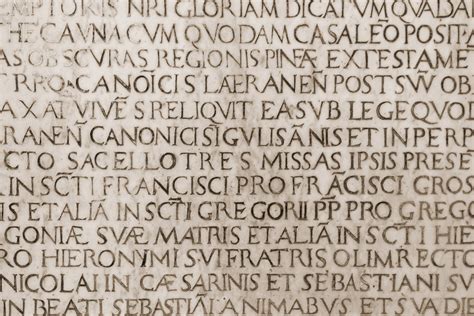 NRI GLORIAM DICATVM QVODA
HEC AVNA CVM QVODAM CASALEÕ POSITE
AS OBSCVRAS REGIONIS PINEÆ EX TESTAME
TRRO CANOĨCIS LÆRANEÑ POST SVVM OB
AXAT VIVĒS RELIQVIT EA SVB LEGE QVOD
RANEÑ CANONICI SIGVLIS ANIS ET IN PERE
CTO SACELLO TRES MISSAS IPSIS PRESE
IN SCTI FRANCISCI PRO FRACISCI GROS
S ET ALIÃ IN SCTI GREGORII PP PRO GREGO
GONIÆ SVÆ MATRIS ET ALIÃ IN SCTI HIE
RO HIERONYMI SVI FRATRIS OLIM RECTO
NICOLAI IN CÆSARINIS ET SEBASTIANI SV
IN BEATI SEBASTIÃI ANIMABVS ET SVA DIE